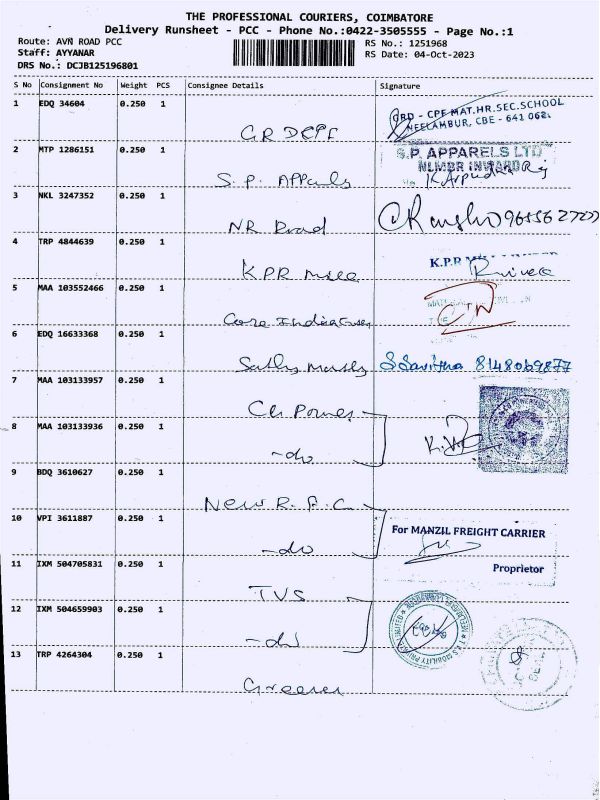 THE PROFESSIONAL COURIERS, COIMBATORE
Delivery Runsheet - PCC - Phone No.:0422-3505555 - Page No.:1
Route: AVN ROAD PCC
RS No.: 1251968
Staff: AYYANAR
RS Date: 04-Oct-2023
DRS No.: DCJB125196801
S No Consignment No Weight PCS Consignee Details Signature
1 EDQ 34604 0.250 1
GRD - CPF MAT.HR.SEC.SCHOOL
NEELAMBUR, CBE - 641 062.
GRDCPF
2 MTP 1286151 0.250 1
S.P. APPARELS LTD
NLMBR INWARD
S.P. Appals
3 NKL 3247352 0.250 1
NR Road
4 TRP 4844639 0.250 1
K.P.R
KPR Mill
5 MAA 103552466 0.250 1
Core India
6 EDQ 16633368 0.250 1
S Savitha 8148069877
7 MAA 103133957 0.250 1
8 MAA 103133936 0.250 1
-do
9 BDQ 3610627 0.250 1
New R.F.C.
10 VPI 3611887 0.250 1
For MANZIL FREIGHT CARRIER
-do
Proprietor
11 IXM 504705831 0.250 1
TVS
12 IXM 504659903 0.250 1
-do
13 TRP 4264304 0.250 1